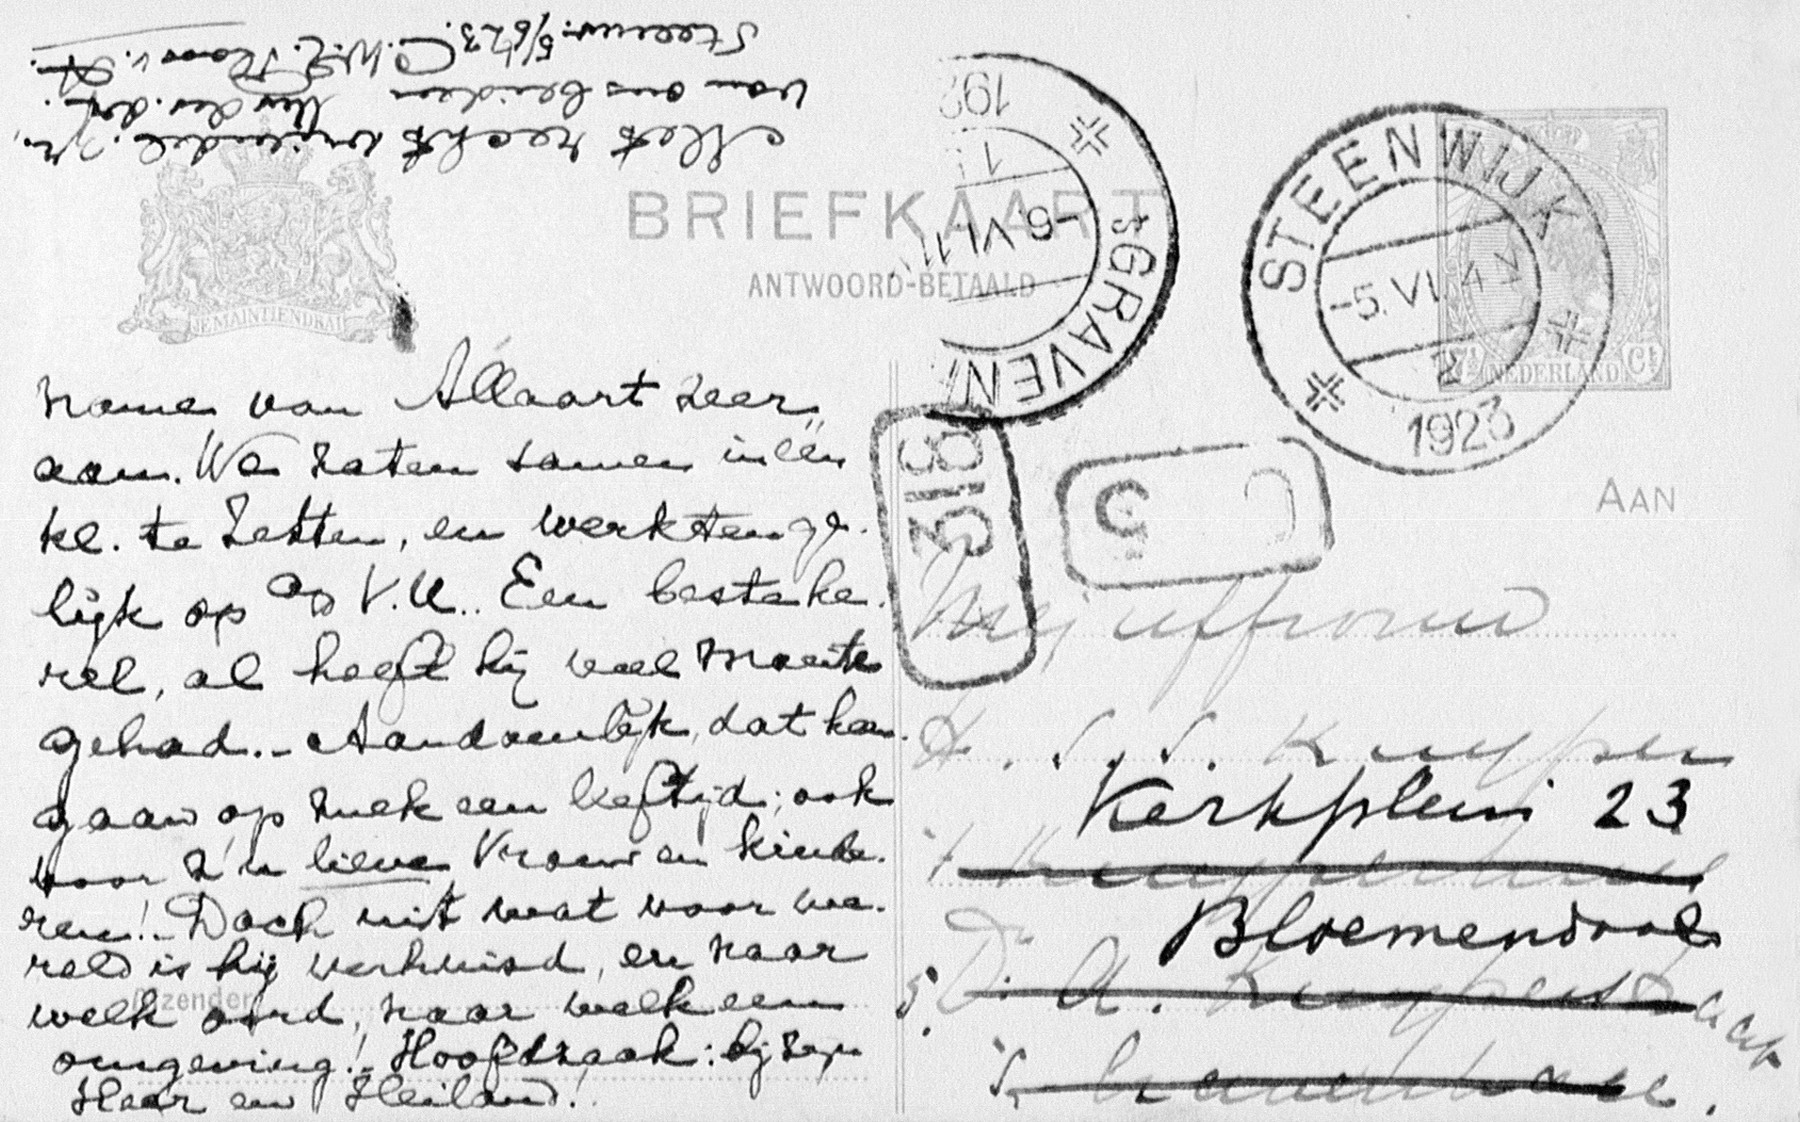 Met recht vriendel. gr.
van ons beiden
Steenw. 5/6 '23. C.W.L.
JE MAINTIENDRAI
BRIEFKAART
ANTWOORD-BETAALD
'S GRAVEN
-6.VI.11
192
STEENWIJK
-5.VI. 4
1923
NEDERLAND
7½ Ct
name van Allaart zeer
aan. We zaten samen in één
kl. te Zetten, en werkten ge-
lijk op a/d V.U.. Een beste ke-
rel, al heeft hij veel moeite
gehad.- Aandoenlijk, dat heen-
gaan, op zulk een leeftijd; ook
voor z'n lieve Vrouw en kinde-
ren!- Doch uit wat voor we-
reld is hij verhuisd, en naar
welk oord, naar welk een
omgeving!- Hoofdzaak: bij zijn
Heer en Heiland!
Afzender
316
C
AAN
Mejuffrouw
H. S. S. Kuyper
Kerkplein 23
Kuyperhuis
Bloemendaal
Dr. A. Kuyperstraat
5.
's Gravenhage.